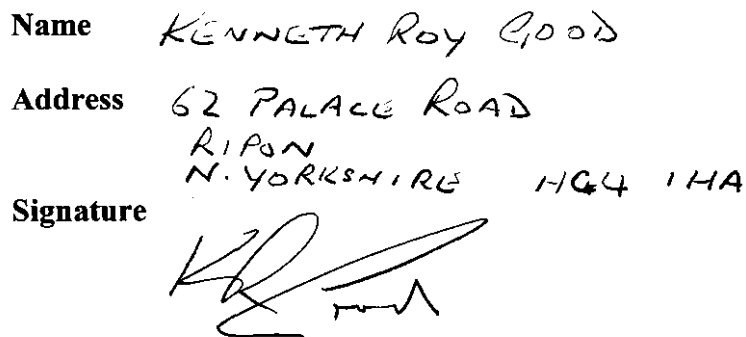 Name KENNETH ROY GOOD
Address 62 PALACE ROAD
RIPON
N. YORKSHIRE HG4 1HA
Signature